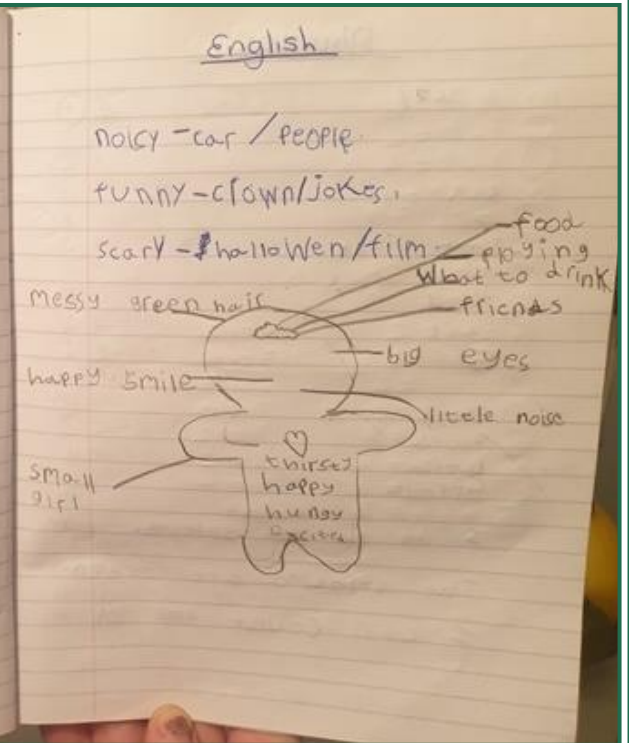 English
noicy - car / people
funny - clown/jokes.
scary - hallowen/film
food
playing
What to drink
friends
messy green hair
big eyes
happy smile
little noise
small
girl
thirsty
happy
hungy